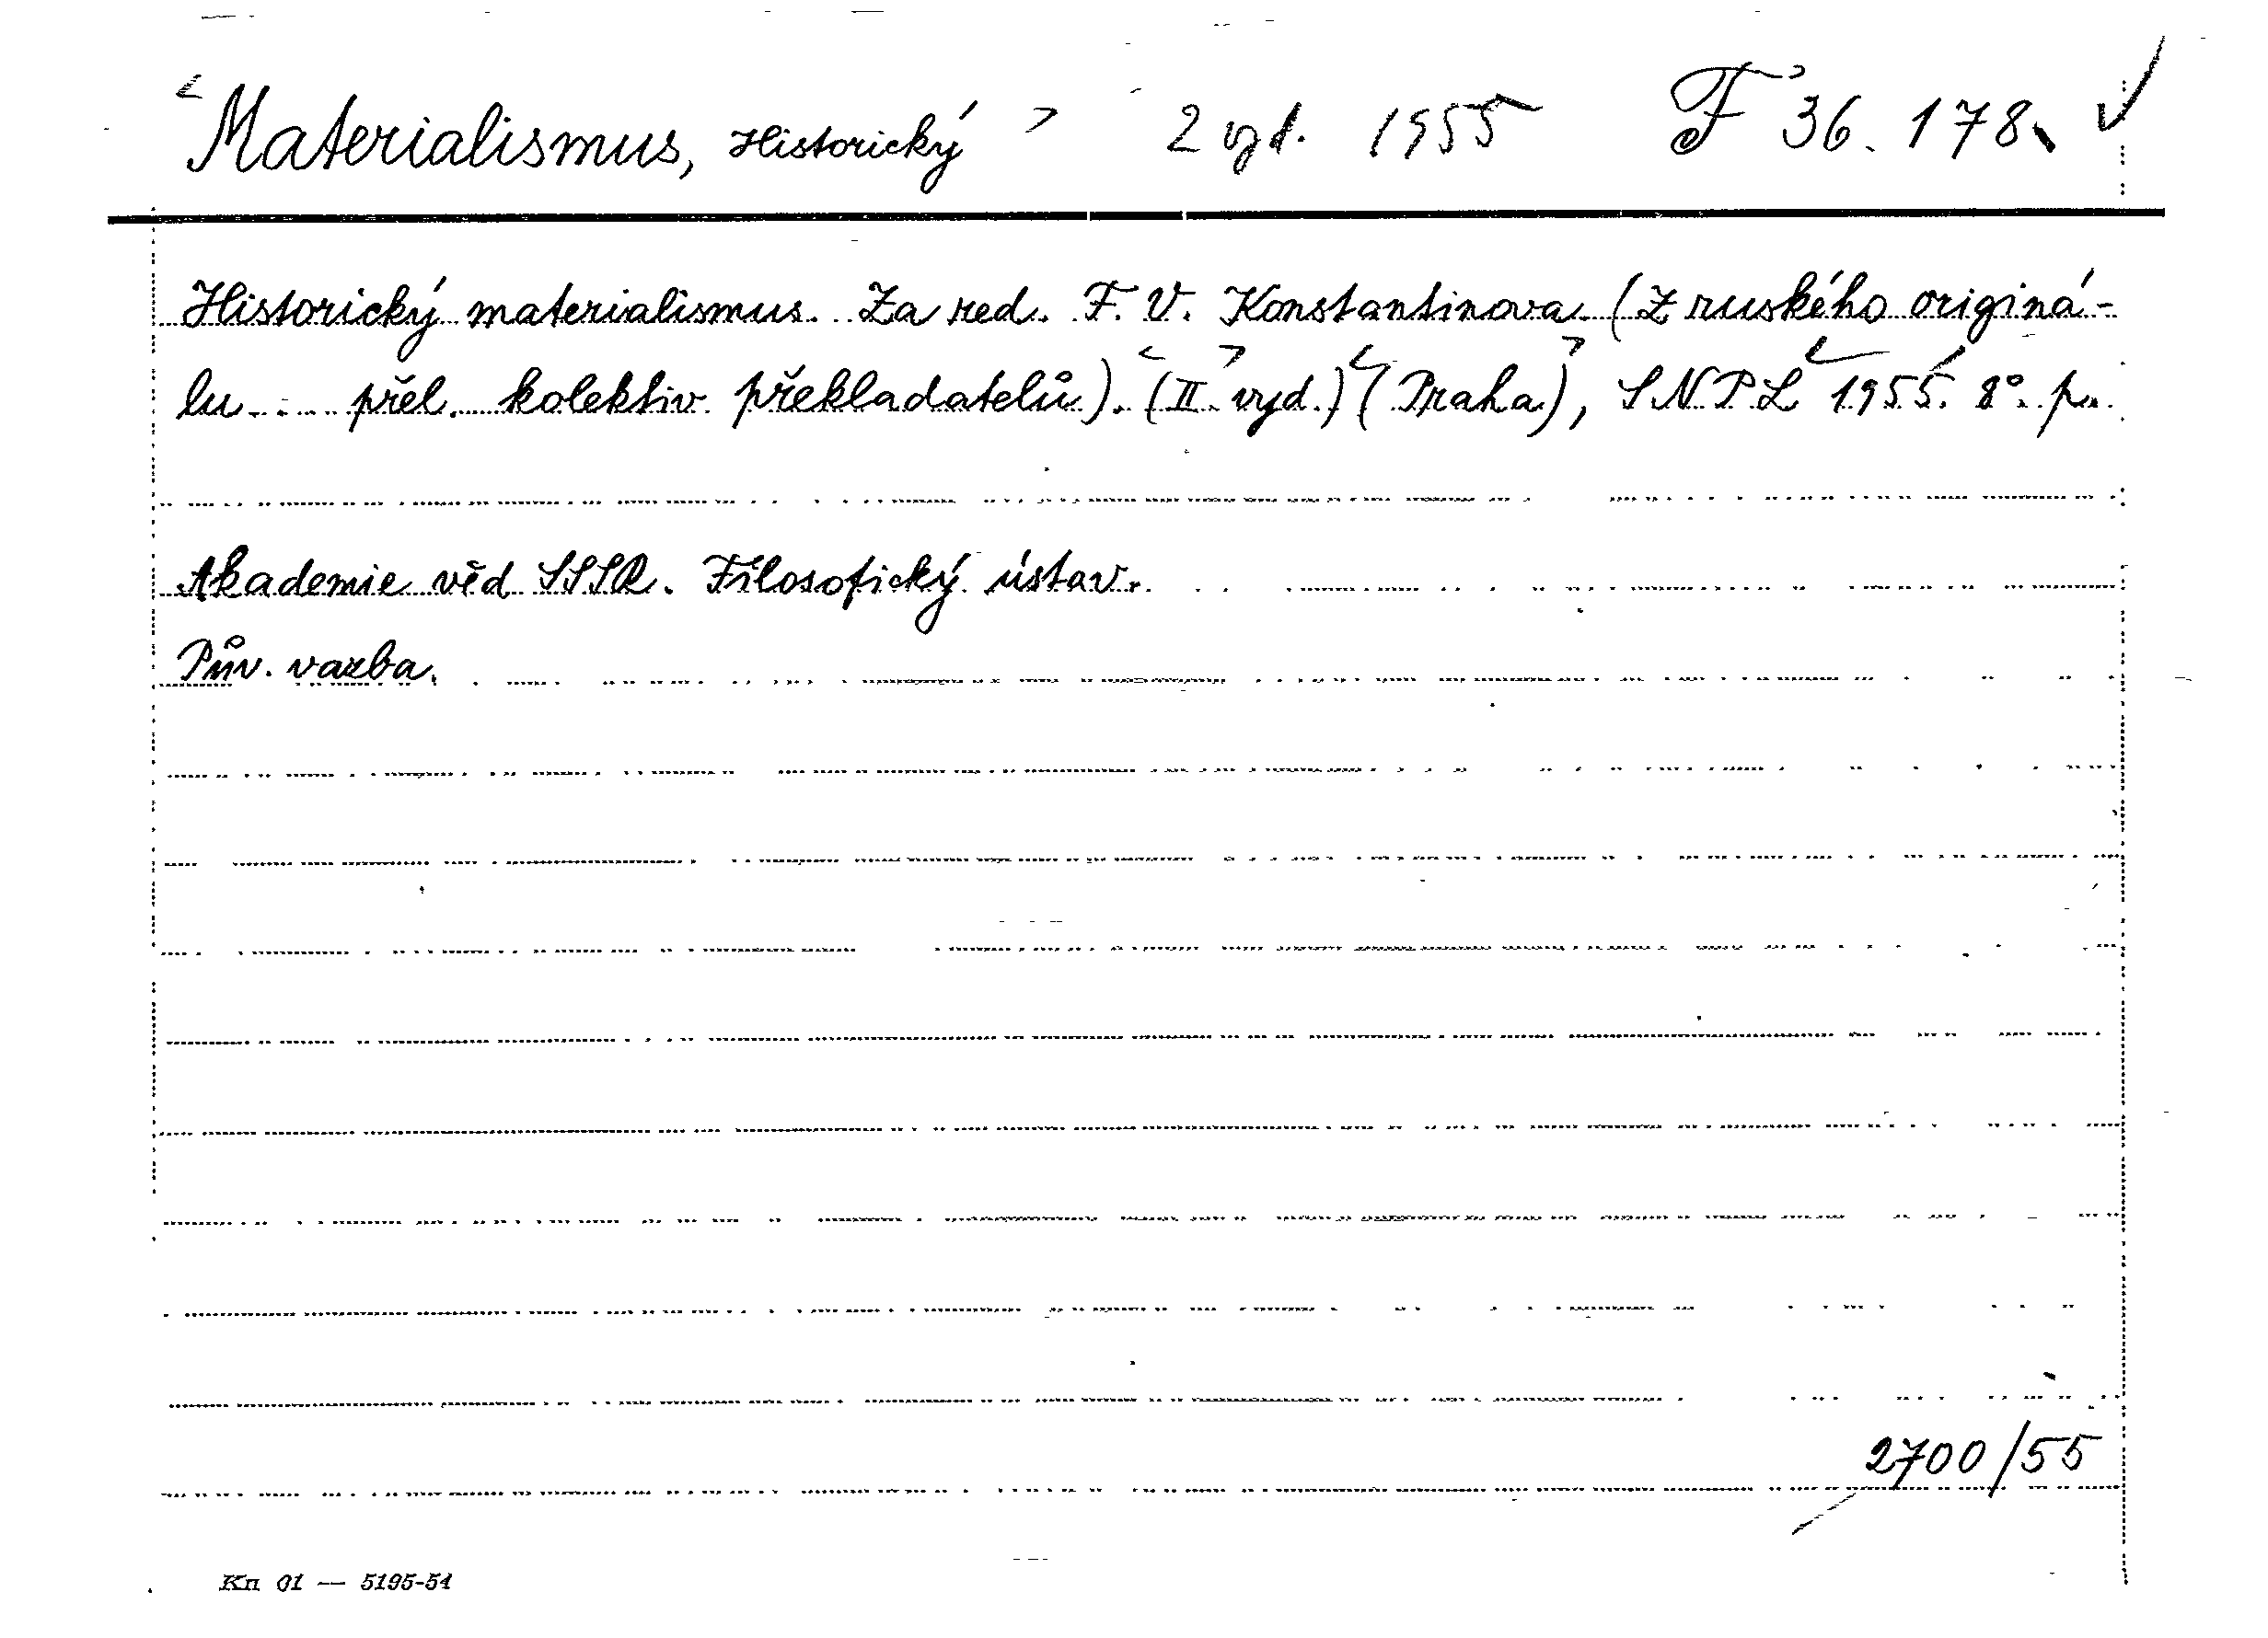 Materialismus, Historický 2 vyd. 1955 F 36.178.
Historický materialismus. Za red. F. V. Konstantinova. (Z ruského originá-
lu... přel. kolektiv překladatelů). (II. vyd.) (Praha), SNPL 1955. 8°. p.
Akademie věd SSSR. Filosofický ústav.
Pův. vazba.
2700/55
Kn 01 — 5195-54